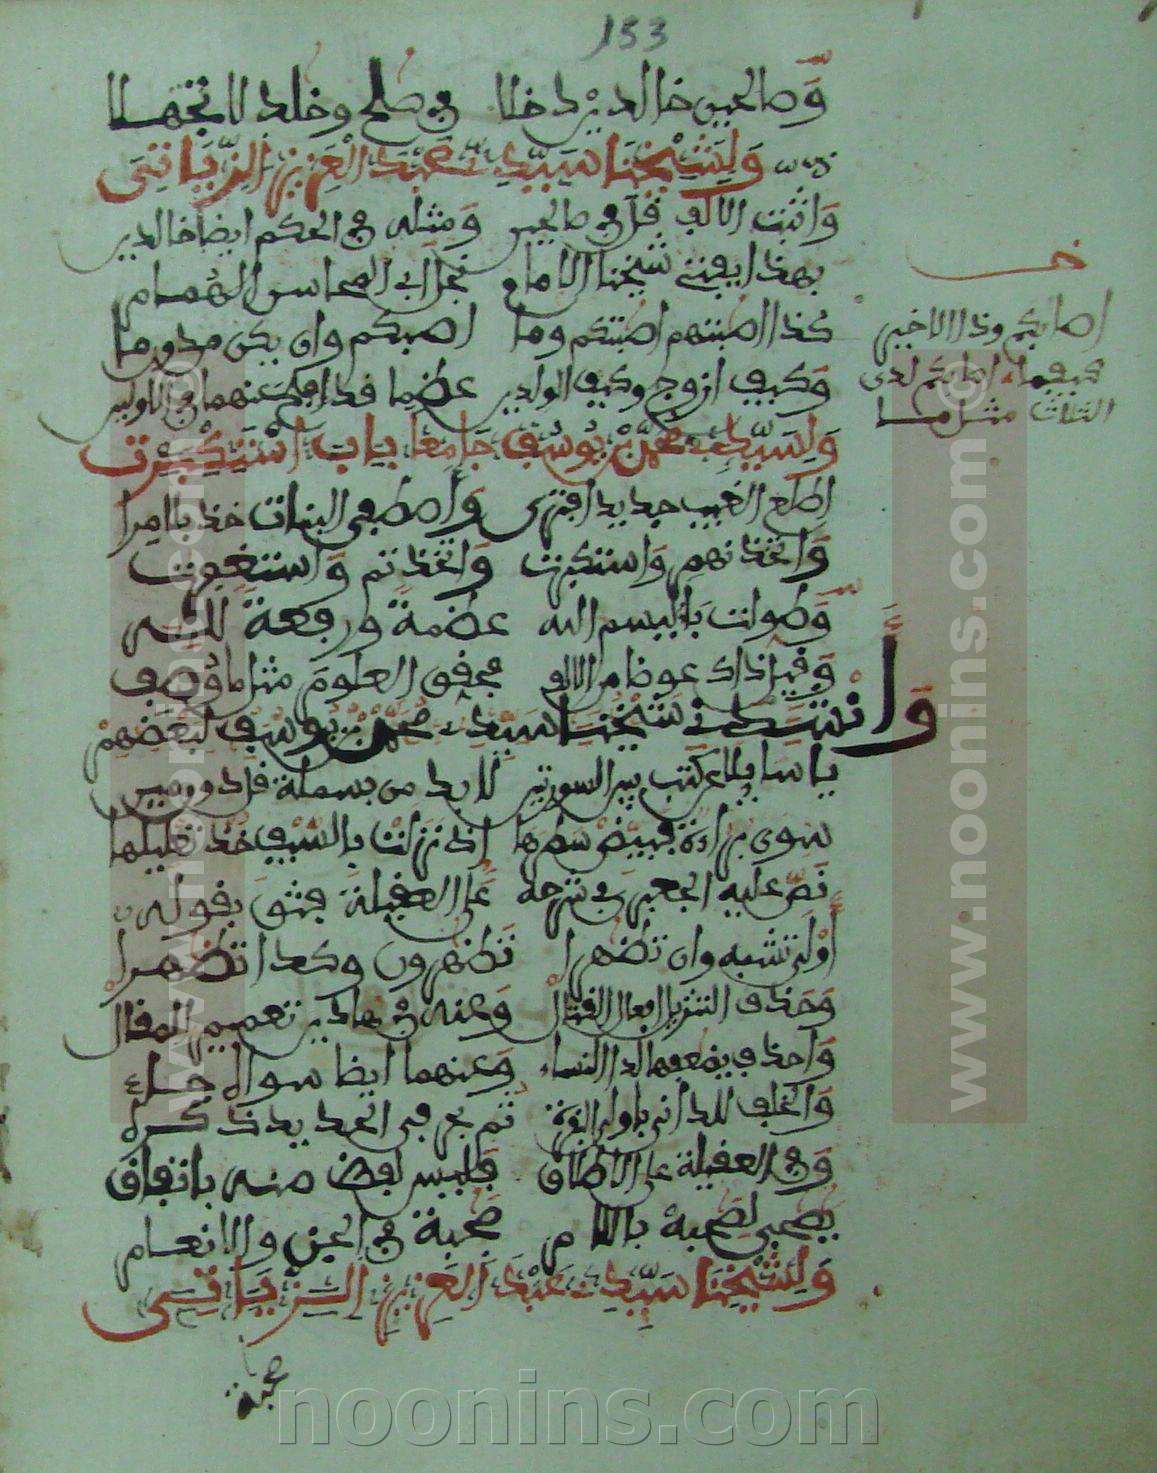 153
وصالحين خالدين دخلا في صلح وخلد لا تجهلا
ولشيخنا سيدي عبد العزيز الزياتي
واثبت الالف قل في صالحين ومثله في الحكم ايضا خالدين
بهذا يفتي شيخنا الامام نجل ابي المحاسن الهمام
كذا اصبتهم اصبتكم وما اصبكم وان يكن
وكيف ازوج وكيف الوالدين عظما في الاولين
ولسيدي بن يوسف جامعا باب استكبرت
اطلع الغيب جديد افترى واصطفى البنات خذ يا
واتخذتهم واستكبرت واتخذتم واستغفرت
بئس الله عظمة ورفعة لله
وقيل ذاك عوضا من الالف محقق العلوم مثل ما وصف
وانشدني شيخنا سيدي بن يوسف لبعضهم
يا سايلا عن كتب بين السورتين لا بد من بسملة قل دون مين
سوى براءة فبيض سطرها اذ نزلت بالسيف خذ تعليلها
نص عليه الجعبري في شرحه على العقيلة فثق بقوله
اولى تشبه وان تظهرا تظهرون وكذا تظهرا
وحذف التنزيل افعال القتال وعنه في تعميم المقال
واحذف يضعفها لدا النساء وعنهما ايضا سوال
والخلف للداني باولى البقرة ثم بحرفي الحديد
وفي العقيلة على الاطلاق فليس لفظ منه باتفاق
يصحبي لصحبه باللام صحبة في الجن والانعام
ولشيخنا سيدي عبد العزيز الزياتي
اصابكم وذا الاخير
كيفما اصابكم لدى
الثلاث مثل ما
www.noonins.com
www.noonins.com
noonins.com